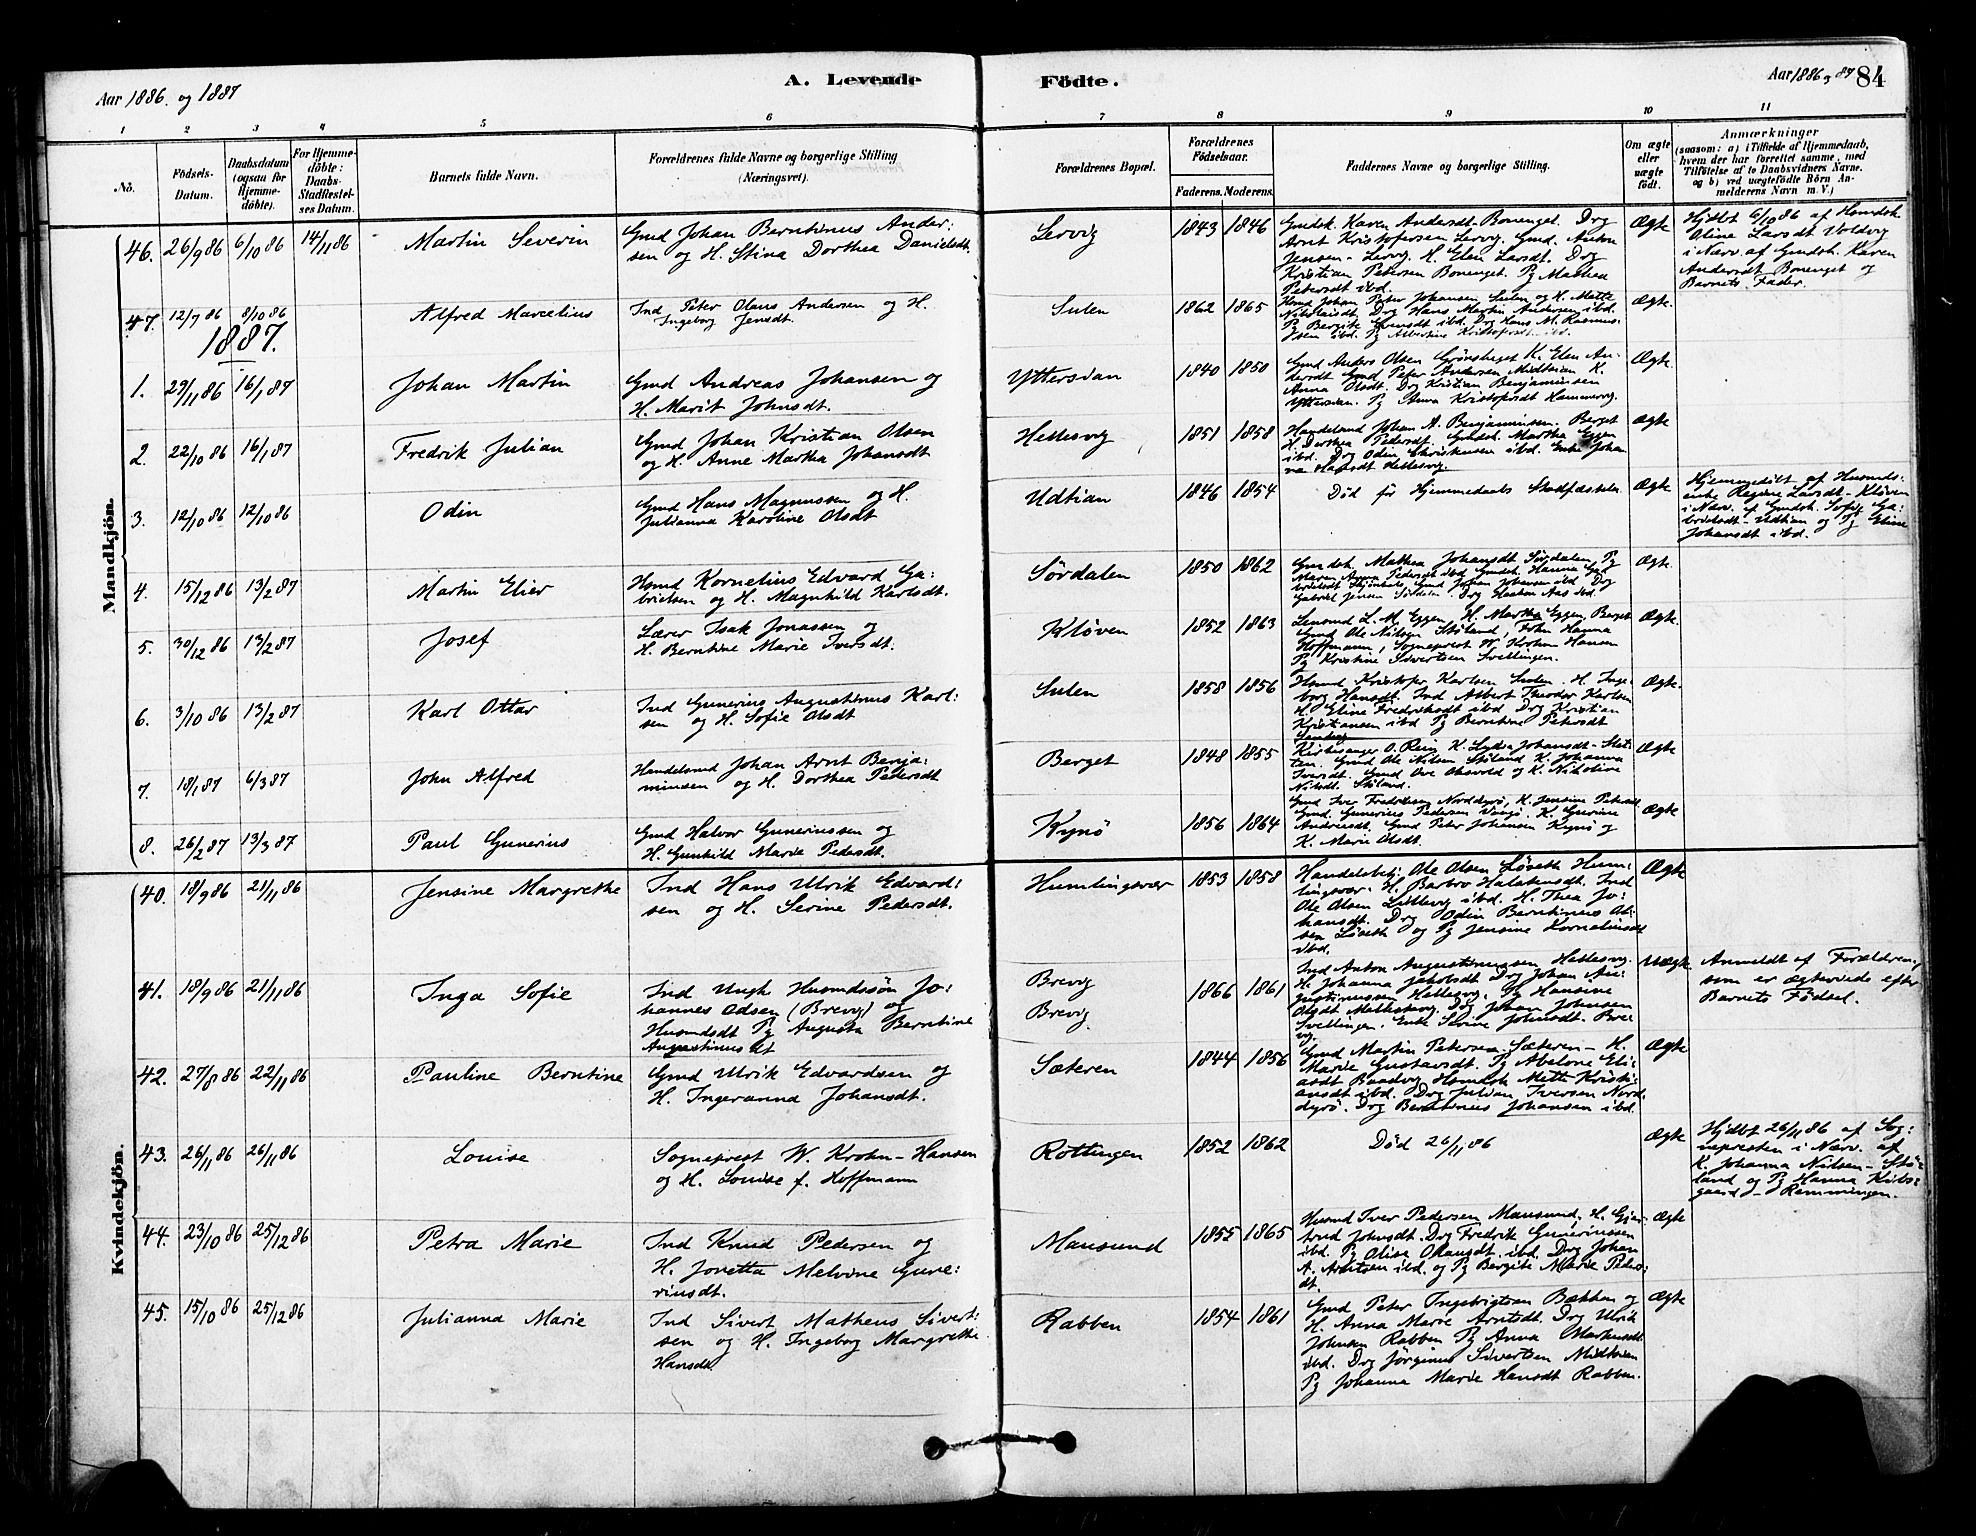 Aar 1886. og 1887
A. Levende
Födte.
Aar 1886 og 87
84
1 2 3 4 5 6 7 8 9 10 11
No.
Födsels-
Datum.
Daabsdatum
(ogsaa for
Hjemme-
döbte).
For Hjemme-
döbte:
Daabs-
Stadfæstel-
ses Datum.
Barnets fulde Navn.
Forældrenes fulde Navne og borgerlige Stilling
(Næringsvei).
Forældrenes Bopæl.
Forældrenes
Födselsaar.
Faderens. Moderens.
Faddernes Navne og borgerlige Stilling.
Om ægte
eller
uægte
födt.
Anmærkninger
(saasom: a) i Tilfælde af Hjemmedaab,
hvem der har forrettet samme, med
Tilföielse af to Daabsvidners Navne,
og b) ved uægtefödte Börn An-
melderens Navn m. V.)
Mandkjön.
46. 26/9 86 6/10 86 14/11 86 Martin Severin
Gmd Johan Berntinus Ander:
sen og H. Stina Dorthea Danielsdt.
Lervig 1843 1846
Gmdsk. Karen Andersdt. Bonenget. Drg
Arnt Kristofersen Lervg. Gmd. Anton
Jensen - Lervg. K. Elen Larsdt. Drg
Kristian Petersen Bonenget. Pg Mathea
Petersdt ibd.
Ægte
Hjdbt 6/10 86 af Hsmdsk.
Oline Larsdt. Voldvg
i Nærv. af Gmdsk. Karen
Andersdt Bonenget og
Barnets Fader.
47. 12/7 86 8/10 86 Alfred Marcelius
Ind Peter Olaus Andersen og H.
Ingeborg Jensdt.
Sulen 1862 1865
Hsmd Johan Peter Johansen Sulen og H. Mette
Nikolaisdt. Drg Hans Martin Andersen ibd.
Pg Bergite Evensdt ibd. Drg Hans M. Rasmus-
sen ibd. Pg Albertine Kristofersdt ibd.
Ægte.
1887.
1. 29/11 86 16/1 87 Johan Martin
Gmd Andreas Johansen og
H. Marit Johnsdt.
Yttersian 1840 1850
Gmd Anders Olsen Grønshaget K. Elen An-
dersdt Gmd Peter Andersen Midtsian K.
Anna Olsdt. Drg Kristian Benjaminsen
Yttersian. Pg Anna Kristofersdt Hammervg.
Ægte.
2. 22/10 86 16/1 87 Fredrik Julian
Gmd Johan Kristian Olsen
og H. Anne Martha Johansdt
Hellesvig 1851 1858
Handelsmd Johan A. Benjaminsen, Berget
H. Dorthea Pedersdt. Gmdsk. Martha Eggen
ibd. Drg Odin Christensen ibd. Enke Johan
na Hansdt Hellesvg.
Ægte
3. 12/10 86 12/10 86 Odin
Gmd Hans Magnussen og H.
Julianna Karoline Olsdt
Udtian 1846 1854
Død før Hjemmedaabs Stadfæstelse
Ægte
Hjemmedöbt af Husmds-
enke Regine Larsdt - Kløven
i Nærv. af Gmdsk. Sofie Ga-
brielsdt - Udtian og Pg Eline
Johansdt ibd.
4. 15/12 86 13/2 87 Martin Elier
Hsmd Kornelius Edvard Ga:
brielsen og H. Magnhild Karlsdt.
Sørdalen 1850 1862
Gmdsk. Mathea Johansdt Sørdalen, Pg
Maren Anna Pedersdt ibd. Gmdsk. Hanna Ga-
brielsdt Gmd Johan Johansen ibd. Drg
Gabriel Jensen Sördalen. Drg Haakon Aas ibd.
Ægte.
5. 30/12 86 13/2 87 Josef
Lærer Isak Jonassen og
H. Berntine Marie Iversdt.
Kløven 1852 1863
Lensmd L. M. Eggen, H. Martha Eggen, Berget
Gmd Ole Nilsen Stöland, Frkn Hanna
Hoffmann, Sogneprest W. Krohn Hansen
Pg Kristine Sivertsen Svellingen.
Ægte.
6. 3/10 86 13/2 87 Karl Ottar
Ind Gunerius Augustinus Karl:
sen og H. Sofie Olsdt
Sulen 1858 1856
Hsmd Kristofer Karlsen Sulen. H. Inge-
borg Hansdt. Ind Albert Theodor Karlsen
H. Eline Fredriksdt ibd. Drg Kristian
Kristiansen ibd. Pg Berntine Petersdt
Ægte.
7. 18/1 87 6/3 87 John Alfred
Handelsmd Johan Arnt Benja:
minsen og H. Dorthea Pedersdt
Berget 1848 1855
Kirkesanger O. Rein K. Lydia Johansdt - Slet-
ten. Gmd Ole Nilsen Stöland K. Johanna
Iversdt. Gmd Ove Olsvold og K. Nikoline
Nilsdt. Stöland.
Ægte
8. 26/2 87 13/3 87 Paul Gunerius
Gmd Halvor Guneriussen og
H. Gunhild Marie Pedersdt.
Kynö 1856 1864
Gmd Iver Fredriksen Norddyrö, K. Jensine Petersdt
Gmd. Gunerius Pedersen K. Gurine
Andreasdt. Gmd Peter Johansen Kynö og
K. Marie Olsdt.
Ægte
Kvindekjön.
40. 18/9 86 21/11 86 Jensine Margrethe
Ind Hans Ulrik Edvard:
sen og H. Serine Pedersdt.
Humlingsvær 1853 1858
Handelsbetj. Ole Olsen Lövseth Hum-
lingsvær. H. Barbro Haldakusdt. Ind
Ole Olsen Lillevg ibd. H. Thea Jo:
hansdt. Drg Odin Berntinus Ol:
sen Lövseth og Pg Jensine Korneliusdt
ibd.
Ægte
41. 18/9 86 21/11 86 Inga Sofie
Ind Ungk Husmdssön Jo:
hannes Odsen (Brevg) og
Husmdsdt Pg Augusta Berntine
Augustinusdt
Brevig
Brevig
1866 1861
Ind Anton Augustinussen Hellesvg.
H. Johanna Jakobsdt Drg Johan Au-
gustinussen Hellesvg. Pg Hansine
Olsdt Melkesvg. Drg Johan Johnsen
Svellingen. Enke Serine Johnsdt. Bre-
vg.
Uægte
Anmeldt af Forældrene,
som er ægteviede efter
Barnets Födsel.
42. 27/8 86 22/11 86 Pauline Berntine
Gmd Ulrik Edvardsen og
H. Ingeranna Johansdt.
Sæteren 1844 1856
Gmd Martin Petersen Sæteren - K.
Marie Gustavsdt. Pg Abelone Eli-
asdt Baadvg. Hsmdsk Mette Kristi-
ansdt ibd. Drg Julian Iversen Nord-
dyrö. Drg Berntinus Johansen ibd.
Ægte
43. 26/11 86 26/11 86 Louise
Sogneprest W. Krohn-Hansen
og H. Louise f. Hoffmann
Rottingen 1852 1862
Död 26/11 86
Ægte
Hjdbt 26/11 86 af Sog:
nepresten i Nærv. af
K. Johanna Nilsen - Stö:
land og Pg Hanna Kibs:
gaard - Remmingen.
44. 23/10 86 25/12 86 Petra Marie
Ind Knud Pedersen og
H. Jonetta Melvine Gune:
riusdt.
Mausund 1855 1865
Husmd Iver Pedersen Mausund, H. Gjer-
trud Johnsdt. Drg Fredrik Gunerinssen
ibd. Pg Olise Olausdt. ibd. Drg Johan
A. Arntsen ibd. og Pg Bergite Marie Peders-
dt.
Ægte
45. 15/10 86 25/12 86 Julianna Marie
Ind Sivert Matheus Sivert:
sen og H. Ingeborg Margrethe
Hansdt
Rabben 1854 1861
Gmd Peter Ingebrigtsen Bækken og
H. Anna Marie Arntsdt. Drg Ulrik
Johnsen Rabben Pg Anna Markusdt
ibd. Drg Jörginus Sivertsen Midtsian
Pg Johanna Marie Hansdt Rabben.
Ægte